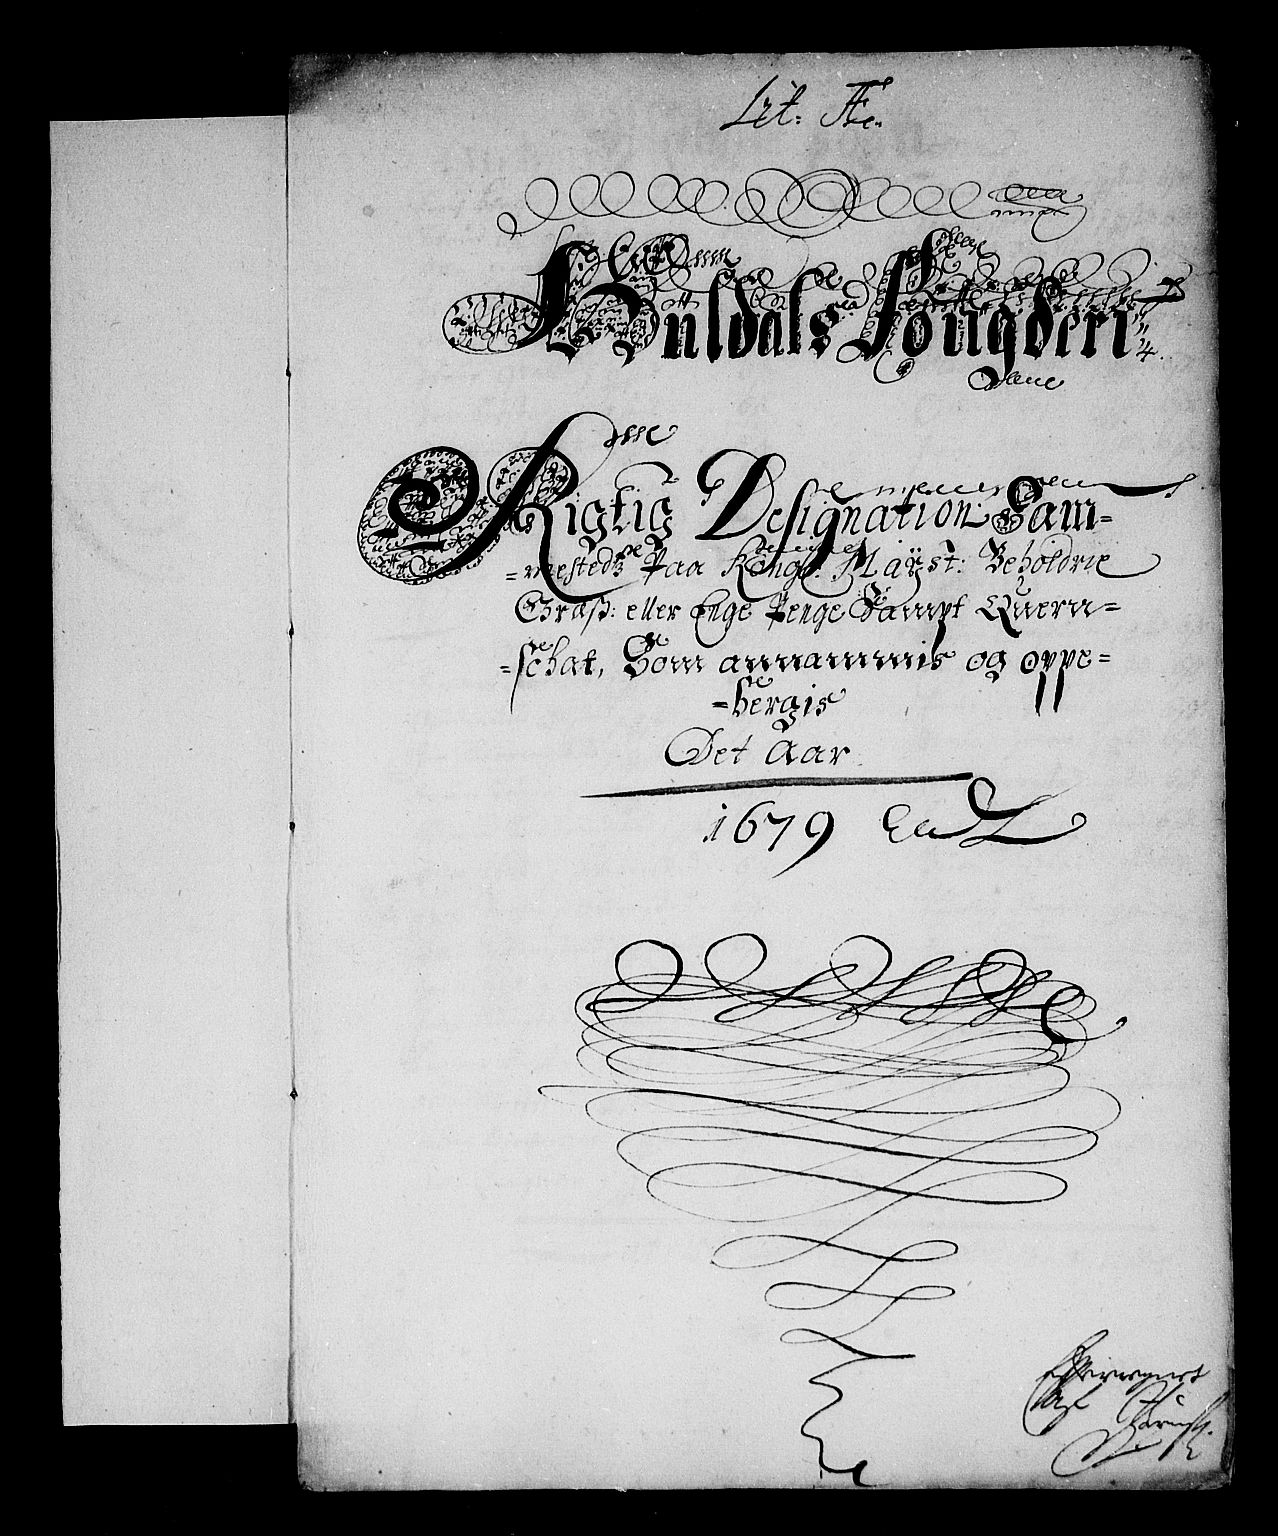 Lit: Æ:
Nuldals Fougderi
Rigtig Designation Sam-
-mesteds Paa Kongl: Mayst: Beholdne
Græs: eller Enge Penge Sampt Quern-
-schat, Som annammis og oppe-
-bergis
Det Aar
1679